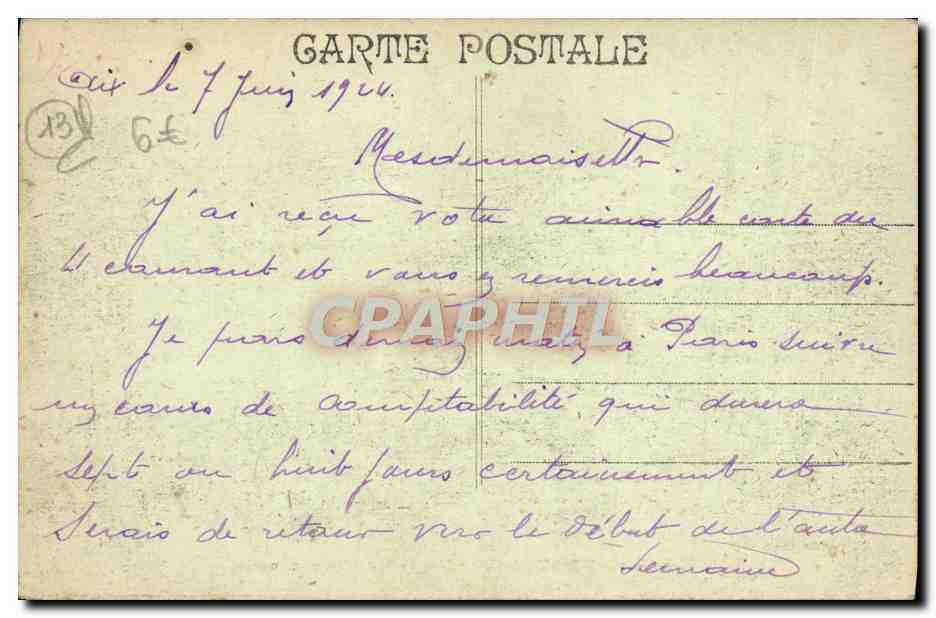 CARTE POSTALE
Aix le 7 Juin 1924.
13
6€
Mesdemoiselles.
J'ai reçu votre aimable carte du
4 courant et vous en remercie beaucoup.
CPAPHIL
Je pars demain matin à Paris suivre
un cours de comptabilité qui durera
sept ou huit jours certainement et
Serais de retour vers le début de l'autre
semaine